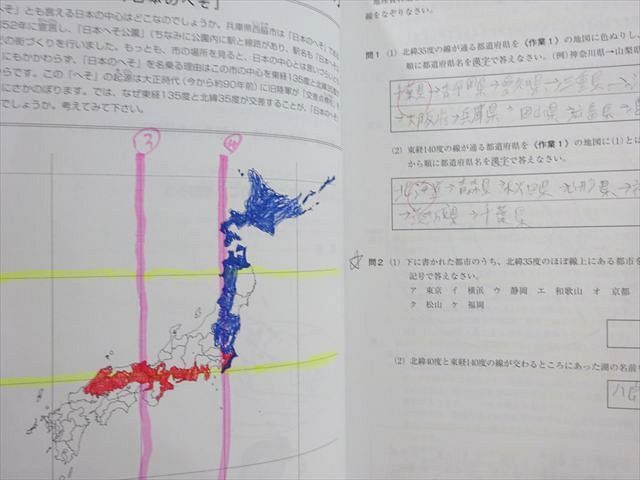 「日本のへそ」
へそ」とも言える日本の中心はどこなのでしょうか。兵庫県西脇市は「日本のへそ」で
52年に宣言し、「日本へそ公園」（ちなみに公園内に駅と線路があり、駅名も「日本へ
どの街づくりを行いました。もっとも、市の場所を見ると、日本の中心とは言いづらい
にもかかわらず、「へそ」を名乗る理由はこの市の中心を東経135度と北緯35度が
らです。この「へそ」の起源は大正時代（今から約90年前）に旧陸軍が「交差点標柱」を
にさかのぼります。では、なぜ東経135度と北緯35度が交差することが、「日本のへそ」
でしょうか。考えてみて下さい。
③ ④
線をなぞりなさい。
問1 (1) 北緯35度の線が通る都道府県を《作業1》の地図に色ぬりし、
順に都道府県名を漢字で答えなさい。（例）神奈川県→山梨県
千葉県→
→大阪府→兵庫県→岡山県→広島県→
(2) 東経140度の線が通る都道府県を《作業1》の地図に(1)とは
から順に都道府県名を漢字で答えなさい。
北海道→青森県→秋田県→山形県→
→茨城県→千葉県
☆ 問2 (1) 下に書かれた都市のうち、北緯35度のほぼ線上にある都市を
記号で答えなさい。
ア 東京 イ 横浜 ウ 静岡 エ 和歌山 オ 京都
ク 松山 ケ 福岡
(2) 北緯40度と東経140度の線が交わるところにあった湖の名前
八郎